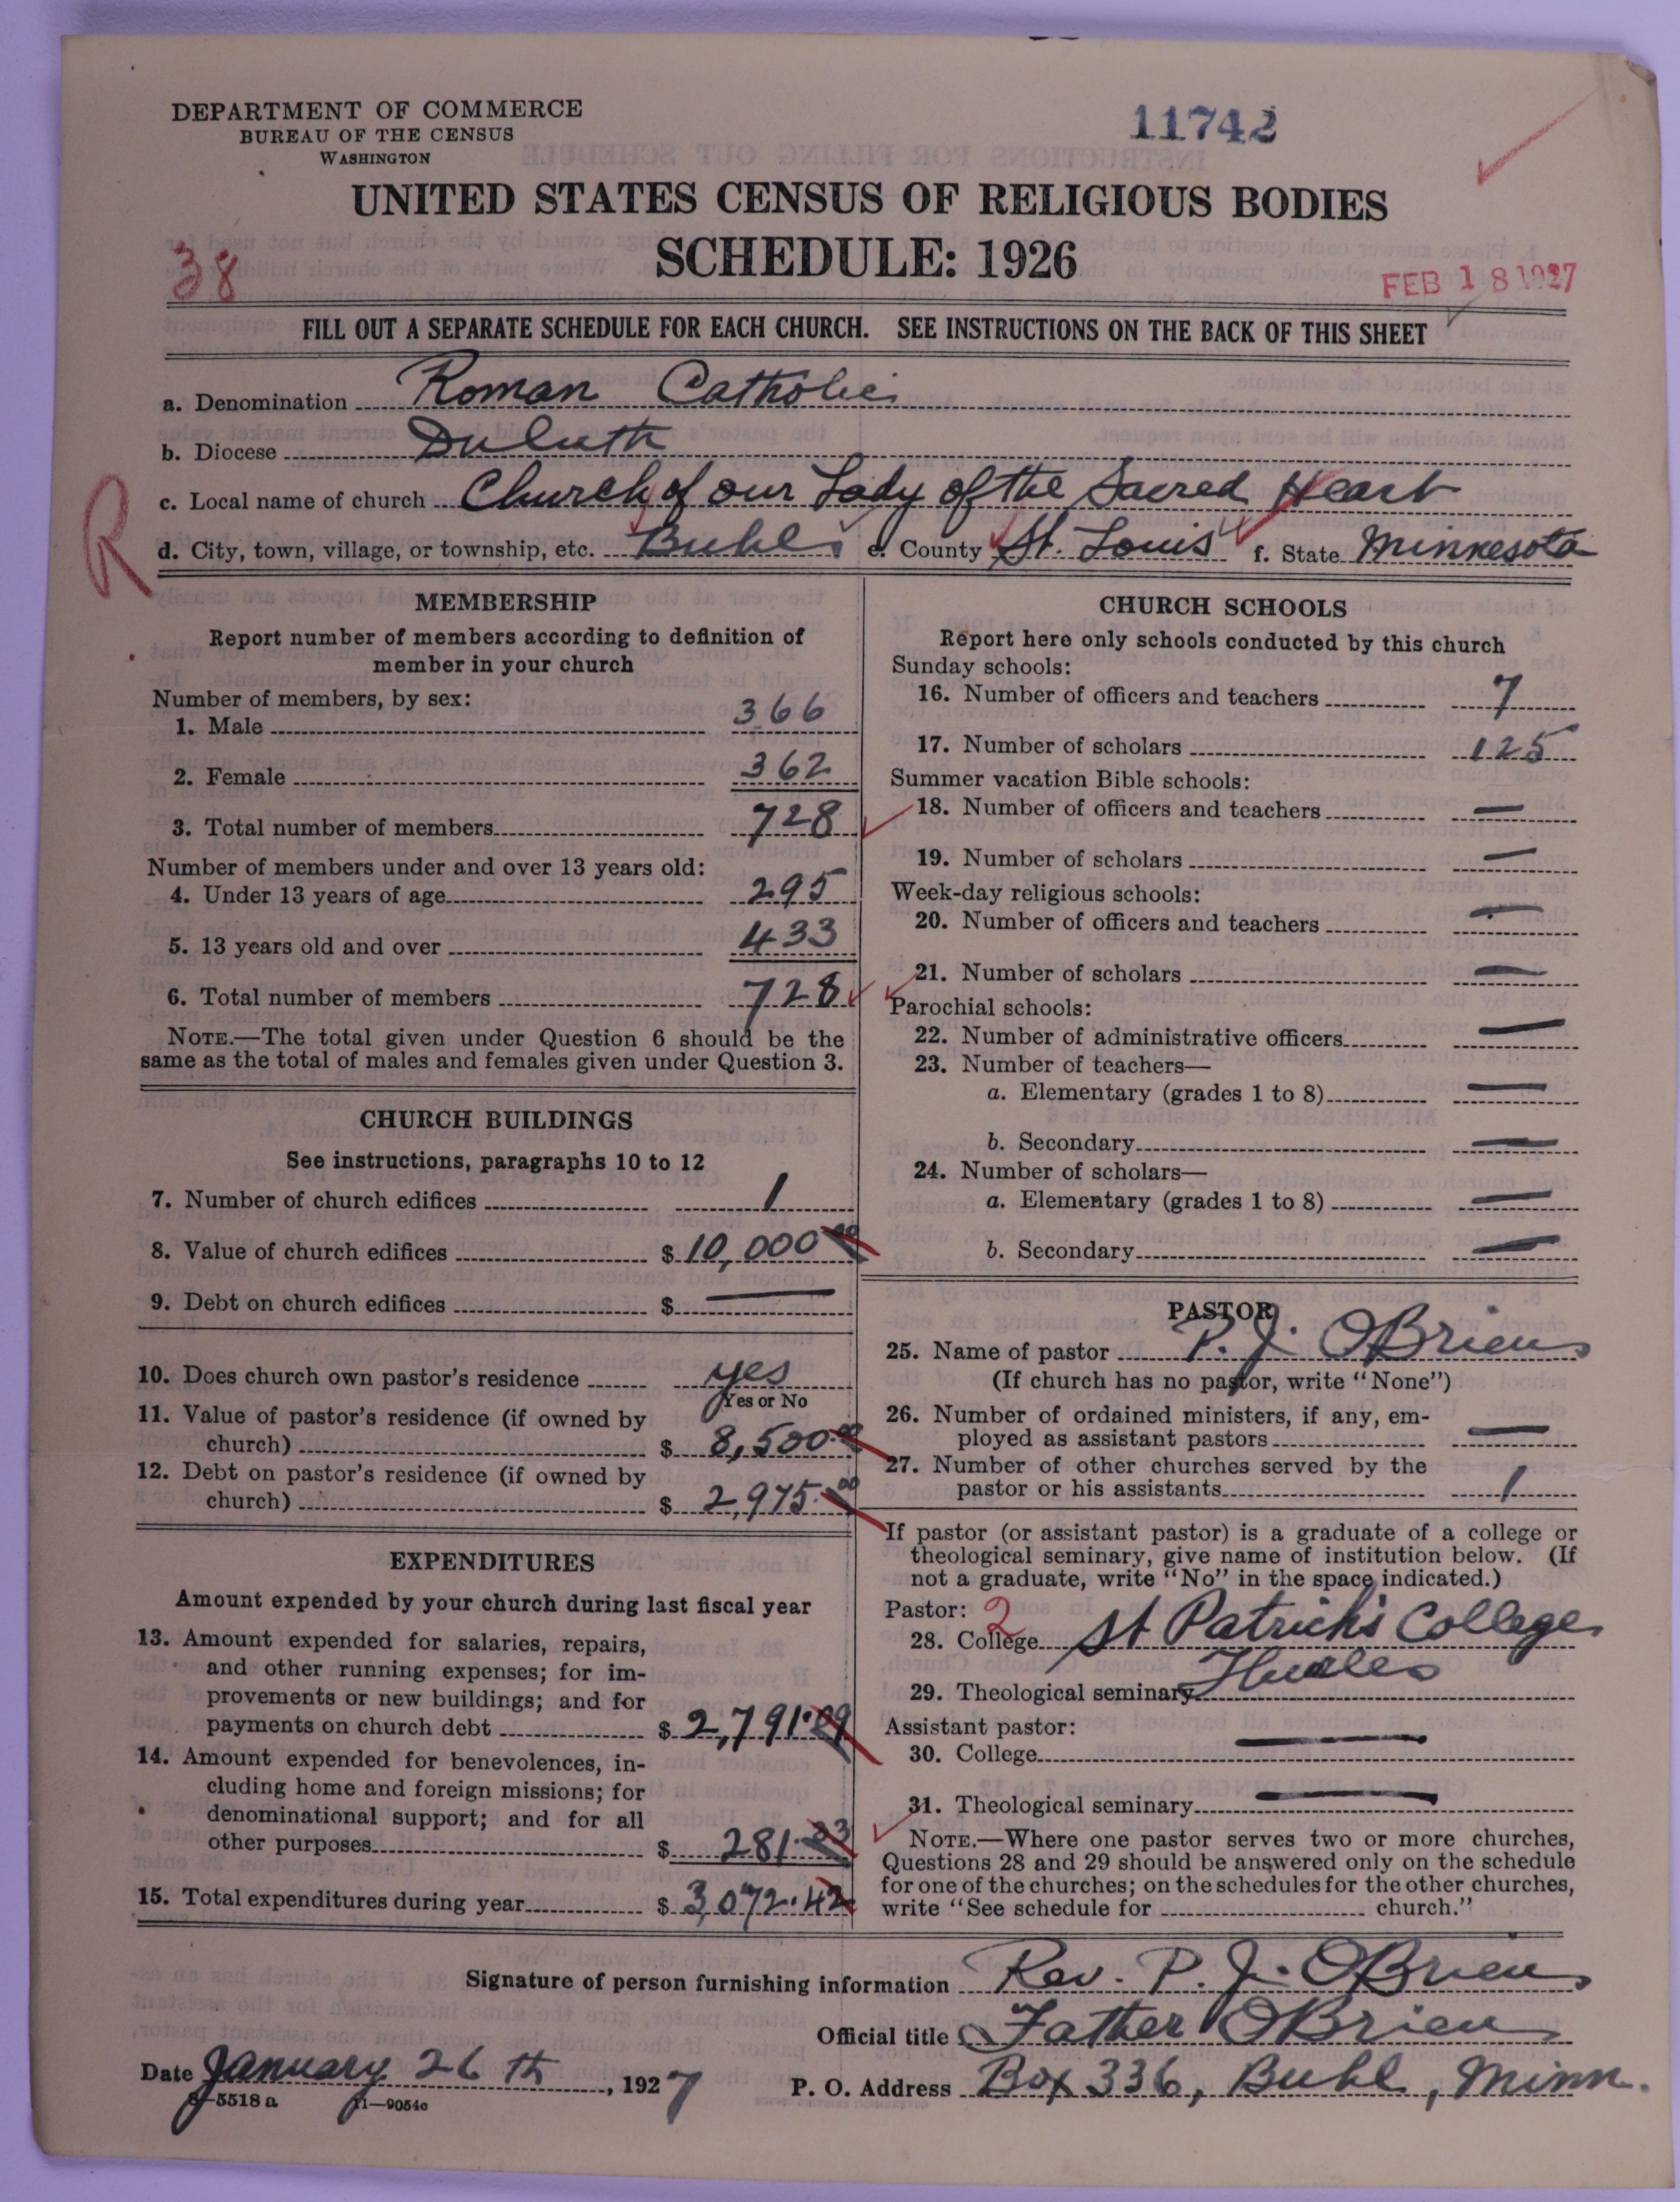 DEPARTMENT OF COMMERCE
BUREAU OF THE CENSUS
WASHINGTON
11742
UNITED STATES CENSUS OF RELIGIOUS BODIES
SCHEDULE: 1926
38
FEB 18 1927
FILL OUT A SEPARATE SCHEDULE FOR EACH CHURCH. SEE INSTRUCTIONS ON THE BACK OF THIS SHEET
a. Denomination Roman Catholic
b. Diocese Duluth
c. Local name of church Church of our Lady of the Sacred Heart
R
d. City, town, village, or township, etc. Buhl e. County St. Louis f. State Minnesota
MEMBERSHIP
Report number of members according to definition of
member in your church
Number of members, by sex:
1. Male 366
2. Female 362
3. Total number of members 728
Number of members under and over 13 years old:
4. Under 13 years of age 295
5. 13 years old and over 433
6. Total number of members 728
NOTE.—The total given under Question 6 should be the
same as the total of males and females given under Question 3.
CHURCH BUILDINGS
See instructions, paragraphs 10 to 12
7. Number of church edifices 1
8. Value of church edifices $ 10,000 00
9. Debt on church edifices $ —
10. Does church own pastor's residence yes
Yes or No
11. Value of pastor's residence (if owned by
church) $ 8,500.00
12. Debt on pastor's residence (if owned by
church) $ 2,975.00
EXPENDITURES
Amount expended by your church during last fiscal year
13. Amount expended for salaries, repairs,
and other running expenses; for im-
provements or new buildings; and for
payments on church debt $ 2,791.09
14. Amount expended for benevolences, in-
cluding home and foreign missions; for
denominational support; and for all
other purposes $ 281.33
15. Total expenditures during year $ 3,072.42
CHURCH SCHOOLS
Report here only schools conducted by this church
Sunday schools:
16. Number of officers and teachers 7
17. Number of scholars 125
Summer vacation Bible schools:
18. Number of officers and teachers —
19. Number of scholars —
Week-day religious schools:
20. Number of officers and teachers —
21. Number of scholars —
Parochial schools:
22. Number of administrative officers —
23. Number of teachers—
a. Elementary (grades 1 to 8) —
b. Secondary —
24. Number of scholars—
a. Elementary (grades 1 to 8) —
b. Secondary —
PASTOR
25. Name of pastor P. J. O'Brien
(If church has no pastor, write "None")
26. Number of ordained ministers, if any, em-
ployed as assistant pastors —
27. Number of other churches served by the
pastor or his assistants 1
If pastor (or assistant pastor) is a graduate of a college or
theological seminary, give name of institution below. (If
not a graduate, write "No" in the space indicated.)
Pastor: 2
28. College St Patrick's College
Thurles
29. Theological seminary
Assistant pastor:
30. College —
31. Theological seminary —
NOTE.—Where one pastor serves two or more churches,
Questions 28 and 29 should be answered only on the schedule
for one of the churches; on the schedules for the other churches,
write "See schedule for church."
Signature of person furnishing information Rev. P. J. O'Brien
Official title Father O'Brien
Date January 26th, 1927 P. O. Address Box 336, Buhl, Minn.
8-5518a 11—9054c